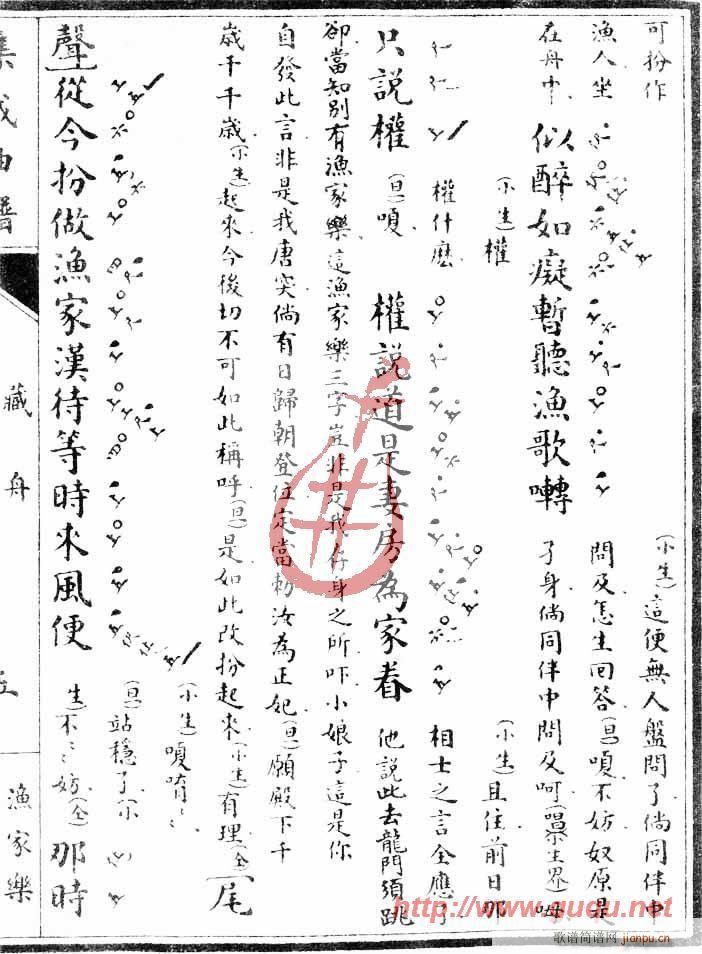 可扮作
漁人坐
在舟中
似醉如癡暫聽漁歌囀
(小生)這便無人盤問了倘同伴中
問及怎生回答(旦)嗄不妨奴原是
孑身倘同伴中問及呵
(小生)權
權什麽
(小生)且住前日那
相士之言全應了
只說權
(旦)嗄
權說道是妻房為家眷
他說此去龍門須跳
卻當知別有漁家樂這漁家樂三字豈非是我存身之所吓小娘子這是你
自發此言非是我唐突倘有日歸朝登位定當勅汝為正妃(旦)願殿下千
歲千千歲(小生)起來今後切不可如此稱呼(旦)是如此改扮起來(小生)有理(仝)
尾
聲
從今扮做漁家漢待等時來風便
(小生)嗄唷
(旦)站穩了(小
生)不〻妨(仝)
那時
集成曲譜
藏舟
漁家樂
http://www.qupu.net
歌谱简谱网 jianpu.cn